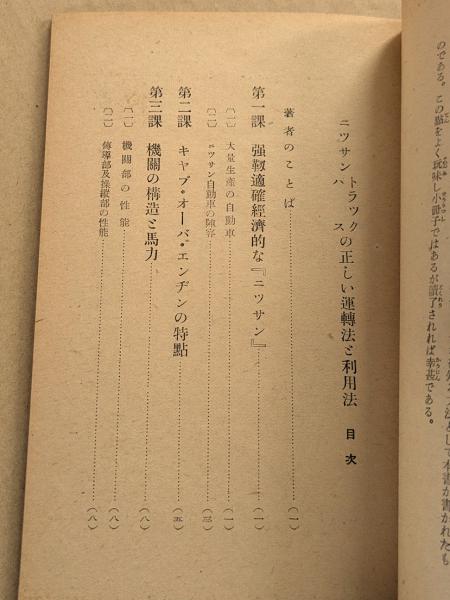 のである。この點をよく玩味し小冊子ではあるが讀了されれば幸甚である。
ニツサン トラツク バス の正しい運轉法と利用法 目次
著者のことば…(一)
第一課 强靱適確經濟的な『ニツサン』…(一)
〔一〕 大量生產の自動車…(一)
〔二〕 ニツサン自動車の陣容…(三)
第二課 キヤブ・オーバ・エンヂンの特點…(五)
第三課 機關の構造と馬力…(八)
〔一〕 機關部の性能…(八)
〔二〕 傳導部及操縱部の性能…(八)